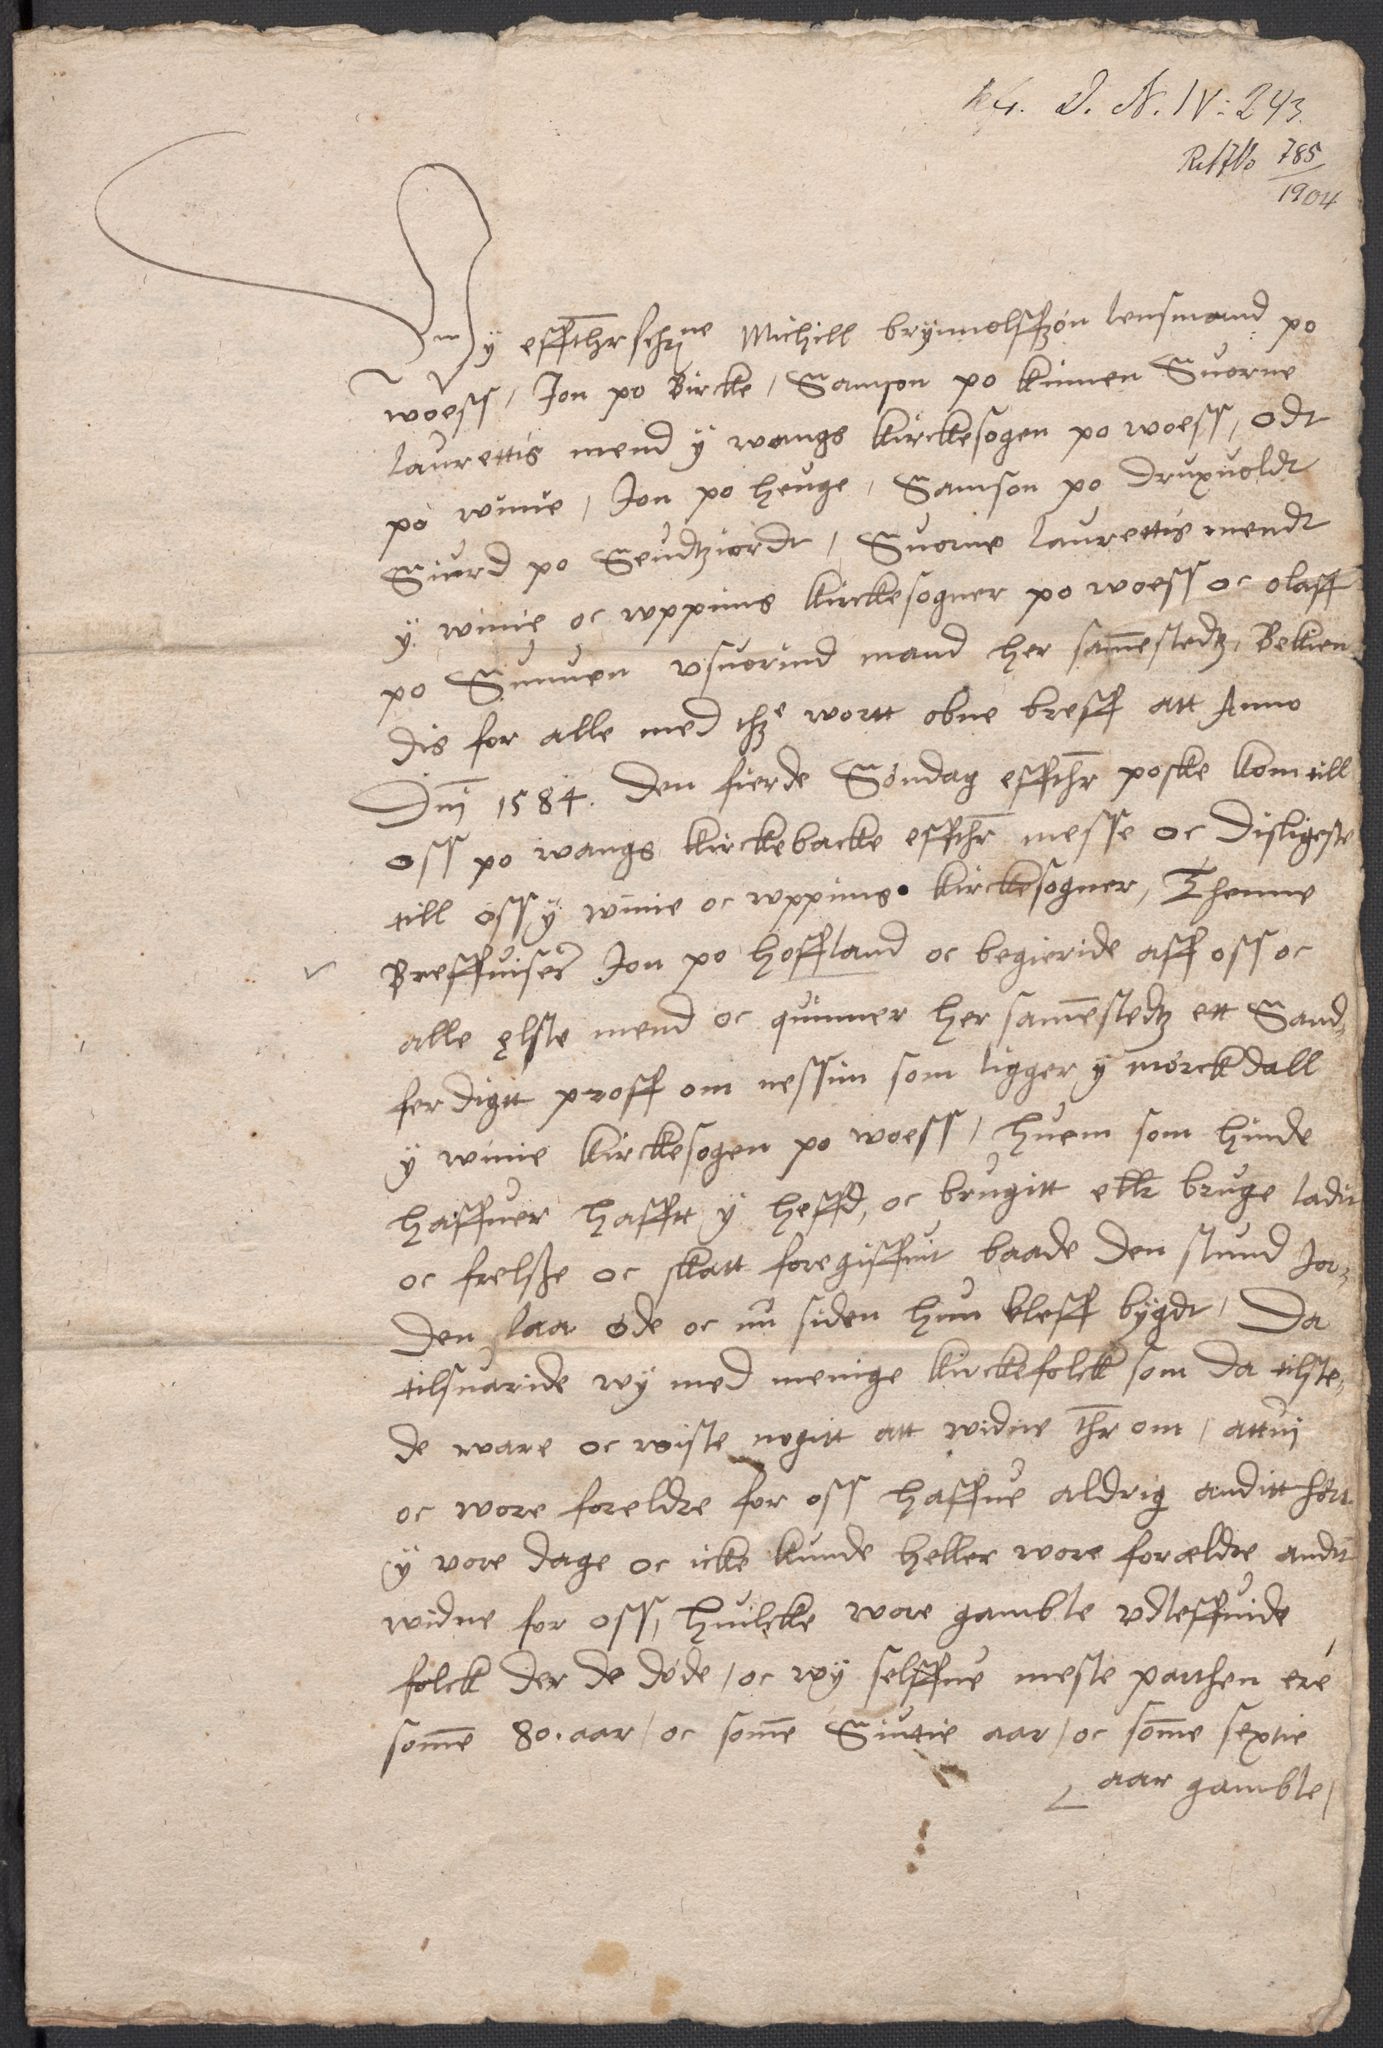 kfr. D. N. IV: 243.
785
1904
Wy effthrschrne Michill brynnolffzøn lensmand po
woess, Jon po Bircke, Samson po kinnen Suorne
laurettis mend ÿ wangs kirckesogen po woess, Odt
po winie, Jon po heuge, Samson po Druxuoldt
Siurd po Seudtziordt, Suorne laurettis mendt
ÿ winie oc wppims kirckesogner po woess oc olaff
po Sunuen vsuorind mand her samestedtz, Bekien
dis for alle med thze wortt obne breff att Anno
Dnj 1584. Den fierde Søndag effthr poske kom till
oss po wangs kirckebacke effthr messe oc disligeste
till oss ÿ winie oc wppims kirckesogner, Thenne
Breffuiser Jon po hoffland oc begieride aff oss oc
alle elste mend oc quinner her samestedtz ett Sand,
ferdigtt proff om nessim som ligger ÿ mørckdall
ÿ winie kirckesogen po woess, huem som hinde
haffuer hafftt ÿ heffd, oc brugitt ellr bruge ladit
oc frelsze oc skatt foregiffuit baade den stund Jor,
den laa øde oc nu siden hun bleff bygdt, Da
tilsuaride wÿ med menige kirckefolck som da tilste,
de ware oc wiste nogitt att widne thr om, attuj
oc wore foreldre for oss haffue aldrig anditt hørt
ÿ vore dage oc icke kunde heller wore forældre andit
widne for oss, huilcke wore gamble vdleffuide
folck der de døde, oc wÿ selffue meste parthen ere
some 80. aar, oc some Siutie aar, oc some sextie
aar gamble,